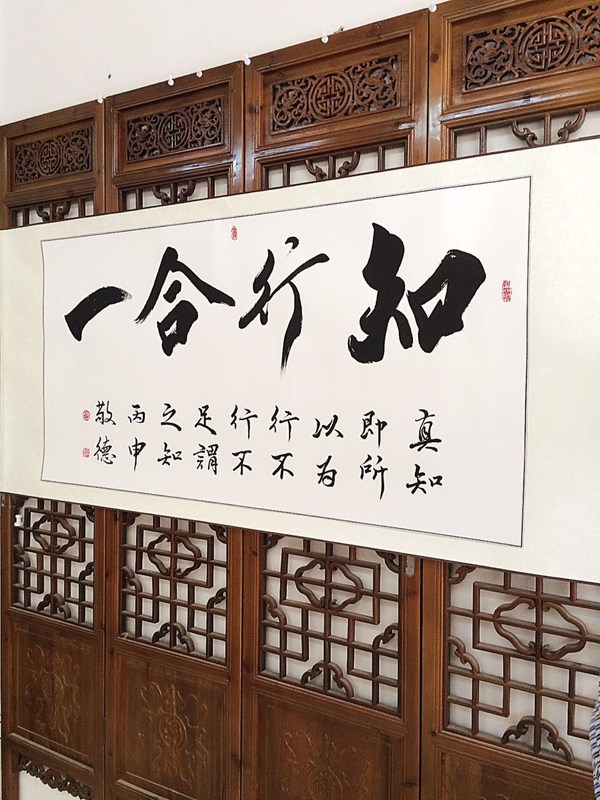 知行合一
真知
即所
以为
行不
行不
足謂
之知
丙申
敬德